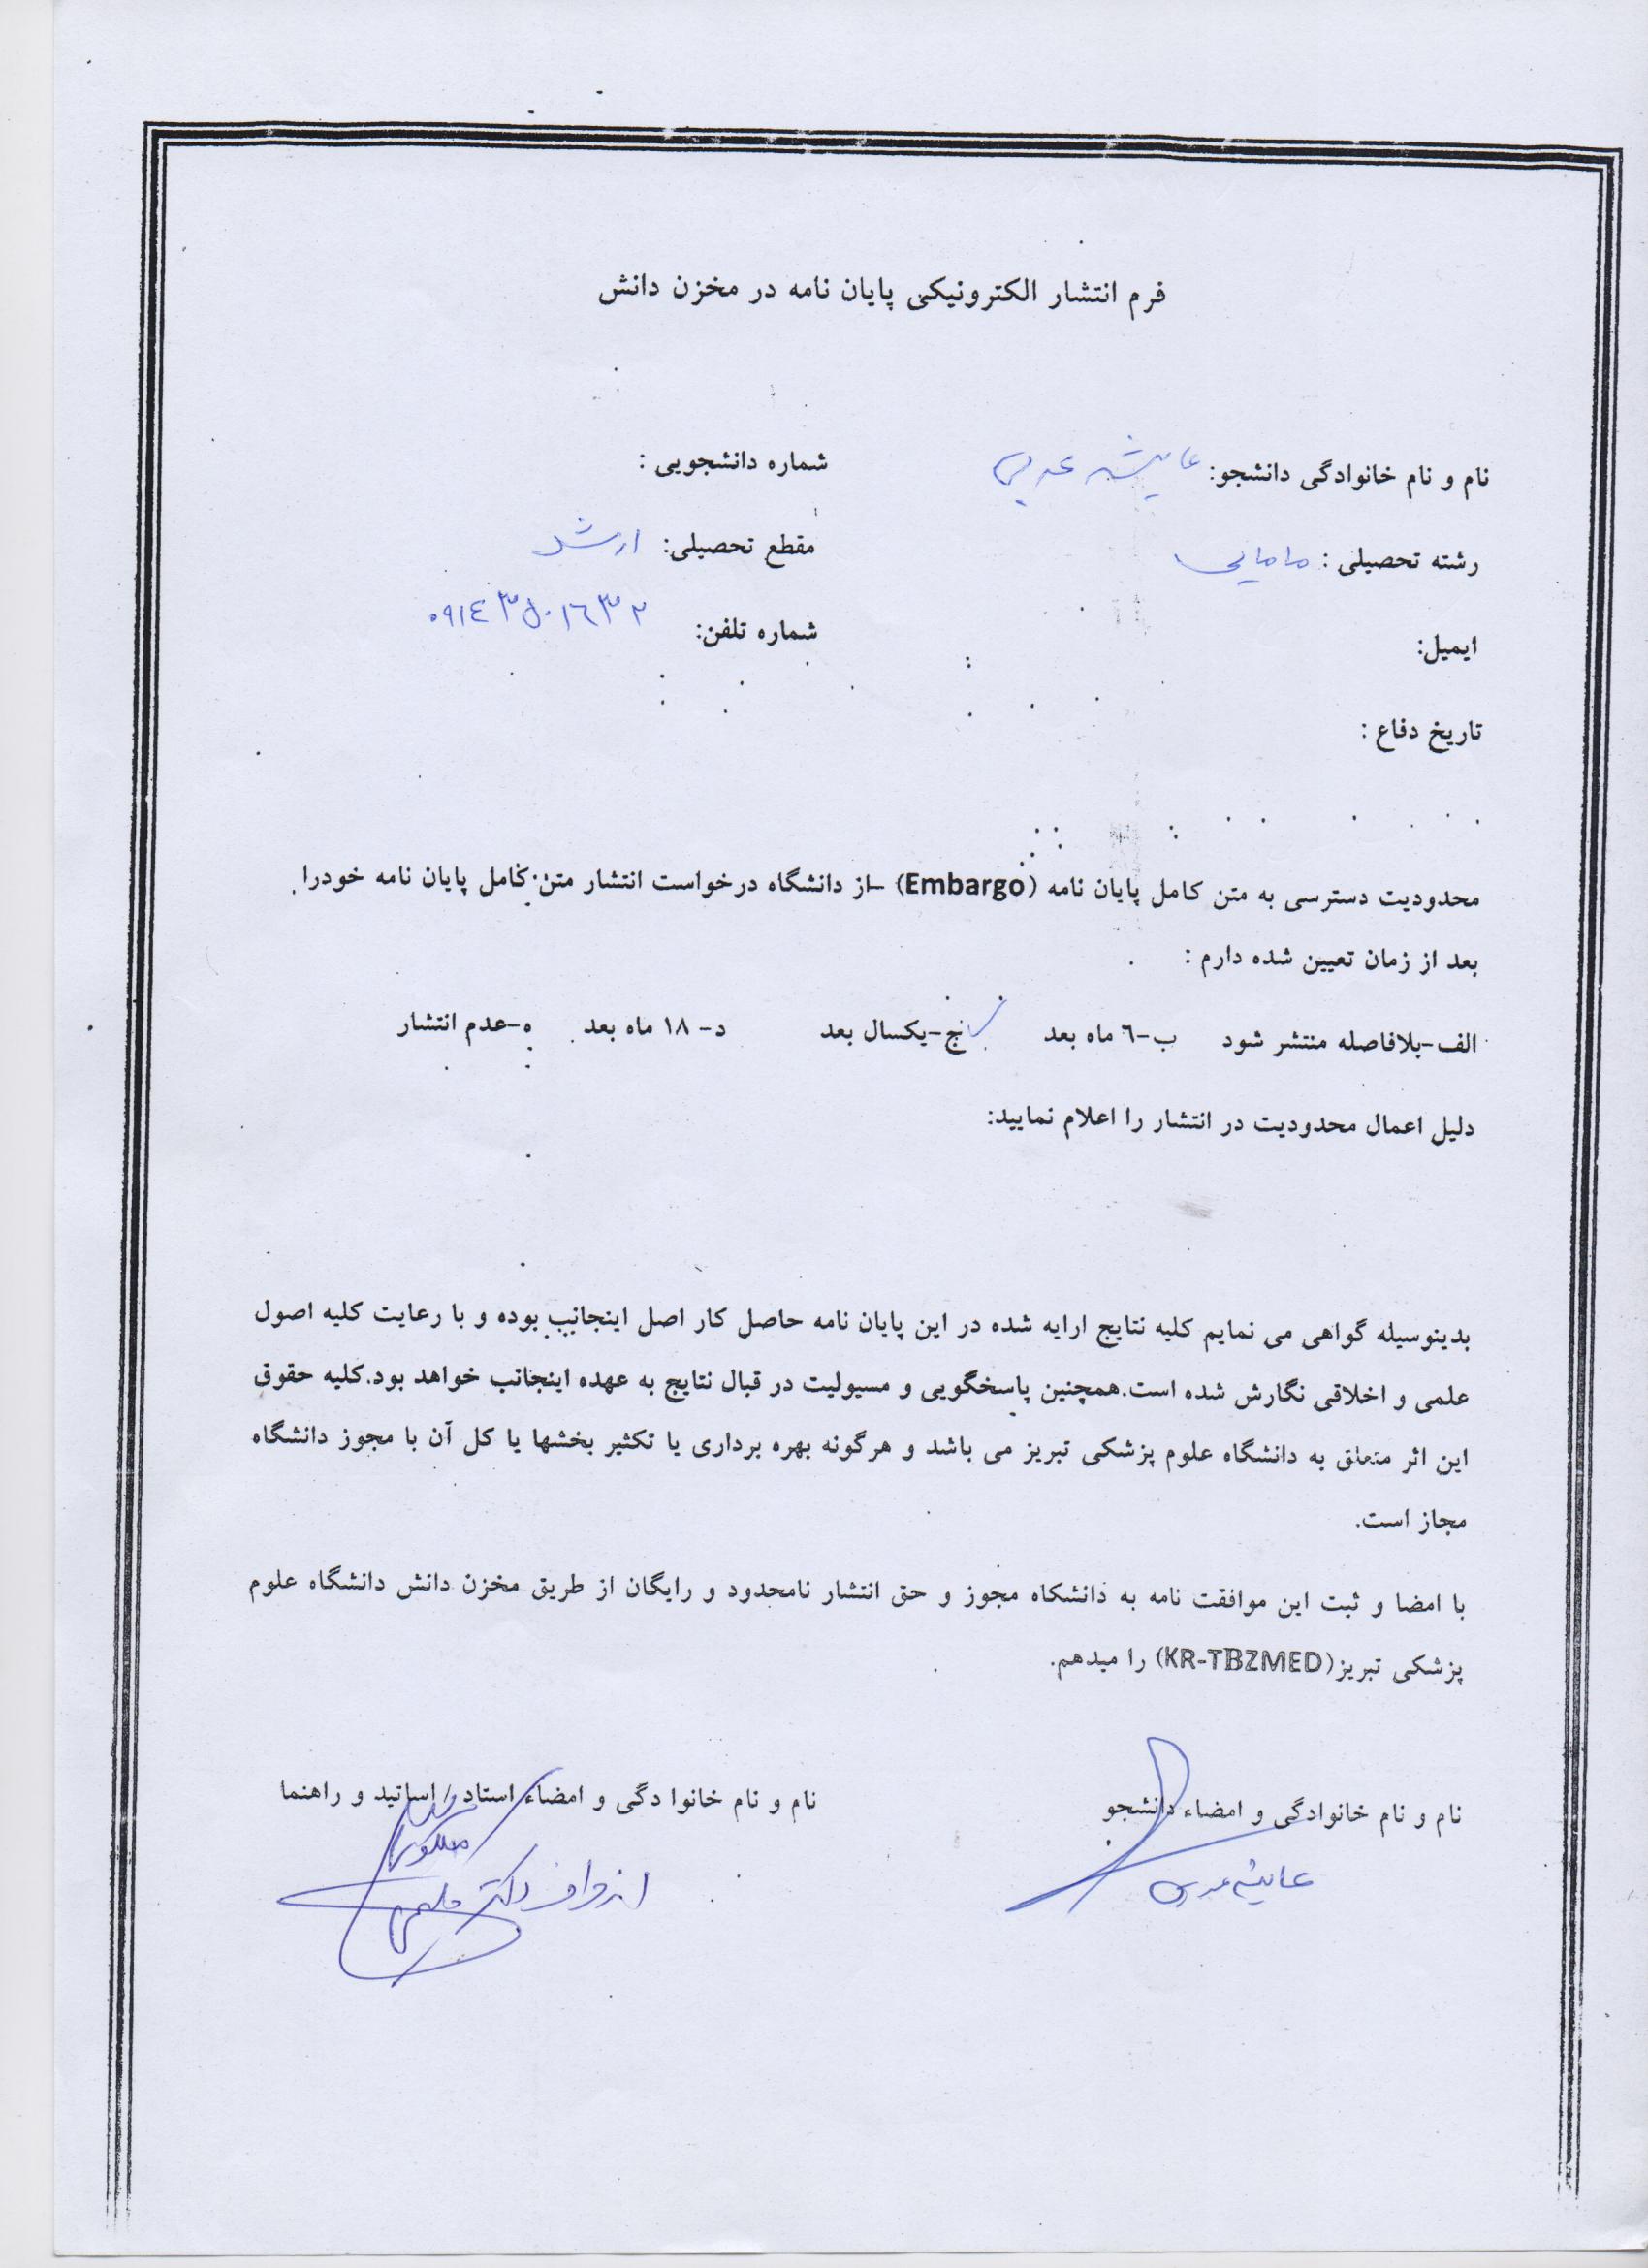 فرم انتشار الکترونیکی پایان نامه در مخزن دانش
نام و نام خانوادگی دانشجو: عایشه عربی شماره دانشجویی :
رشته تحصیلی : مامایی مقطع تحصیلی: ارشد
ایمیل: شماره تلفن: ۰۹۱٤۳۵۰۱٦۳۲
تاریخ دفاع :
محدودیت دسترسی به متن کامل پایان نامه (Embargo) –از دانشگاه درخواست انتشار متن کامل پایان نامه خودرا
بعد از زمان تعیین شده دارم :
الف-بلافاصله منتشر شود ب-٦ ماه بعد ج-یکسال بعد د- ۱۸ ماه بعد ه-عدم انتشار
دلیل اعمال محدودیت در انتشار را اعلام نمایید:
بدینوسیله گواهی می نمایم کلیه نتایج ارایه شده در این پایان نامه حاصل کار اصل اینجانب بوده و با رعایت کلیه اصول
علمی و اخلاقی نگارش شده است.همچنین پاسخگویی و مسیولیت در قبال نتایج به عهده اینجانب خواهد بود.کلیه حقوق
این اثر متعلق به دانشگاه علوم پزشکی تبریز می باشد و هرگونه بهره برداری یا تکثیر بخشها یا کل آن با مجوز دانشگاه
مجاز است.
با امضا و ثبت این موافقت نامه به دانشکاه مجوز و حق انتشار نامحدود و رایگان از طریق مخزن دانش دانشگاه علوم
پزشکی تبریز(KR-TBZMED) را میدهم.
نام و نام خانوادگی و امضاء دانشجو نام و نام خانوا دگی و امضاء استاد / اساتید و راهنما
عایشه عربی از طرف دکتر